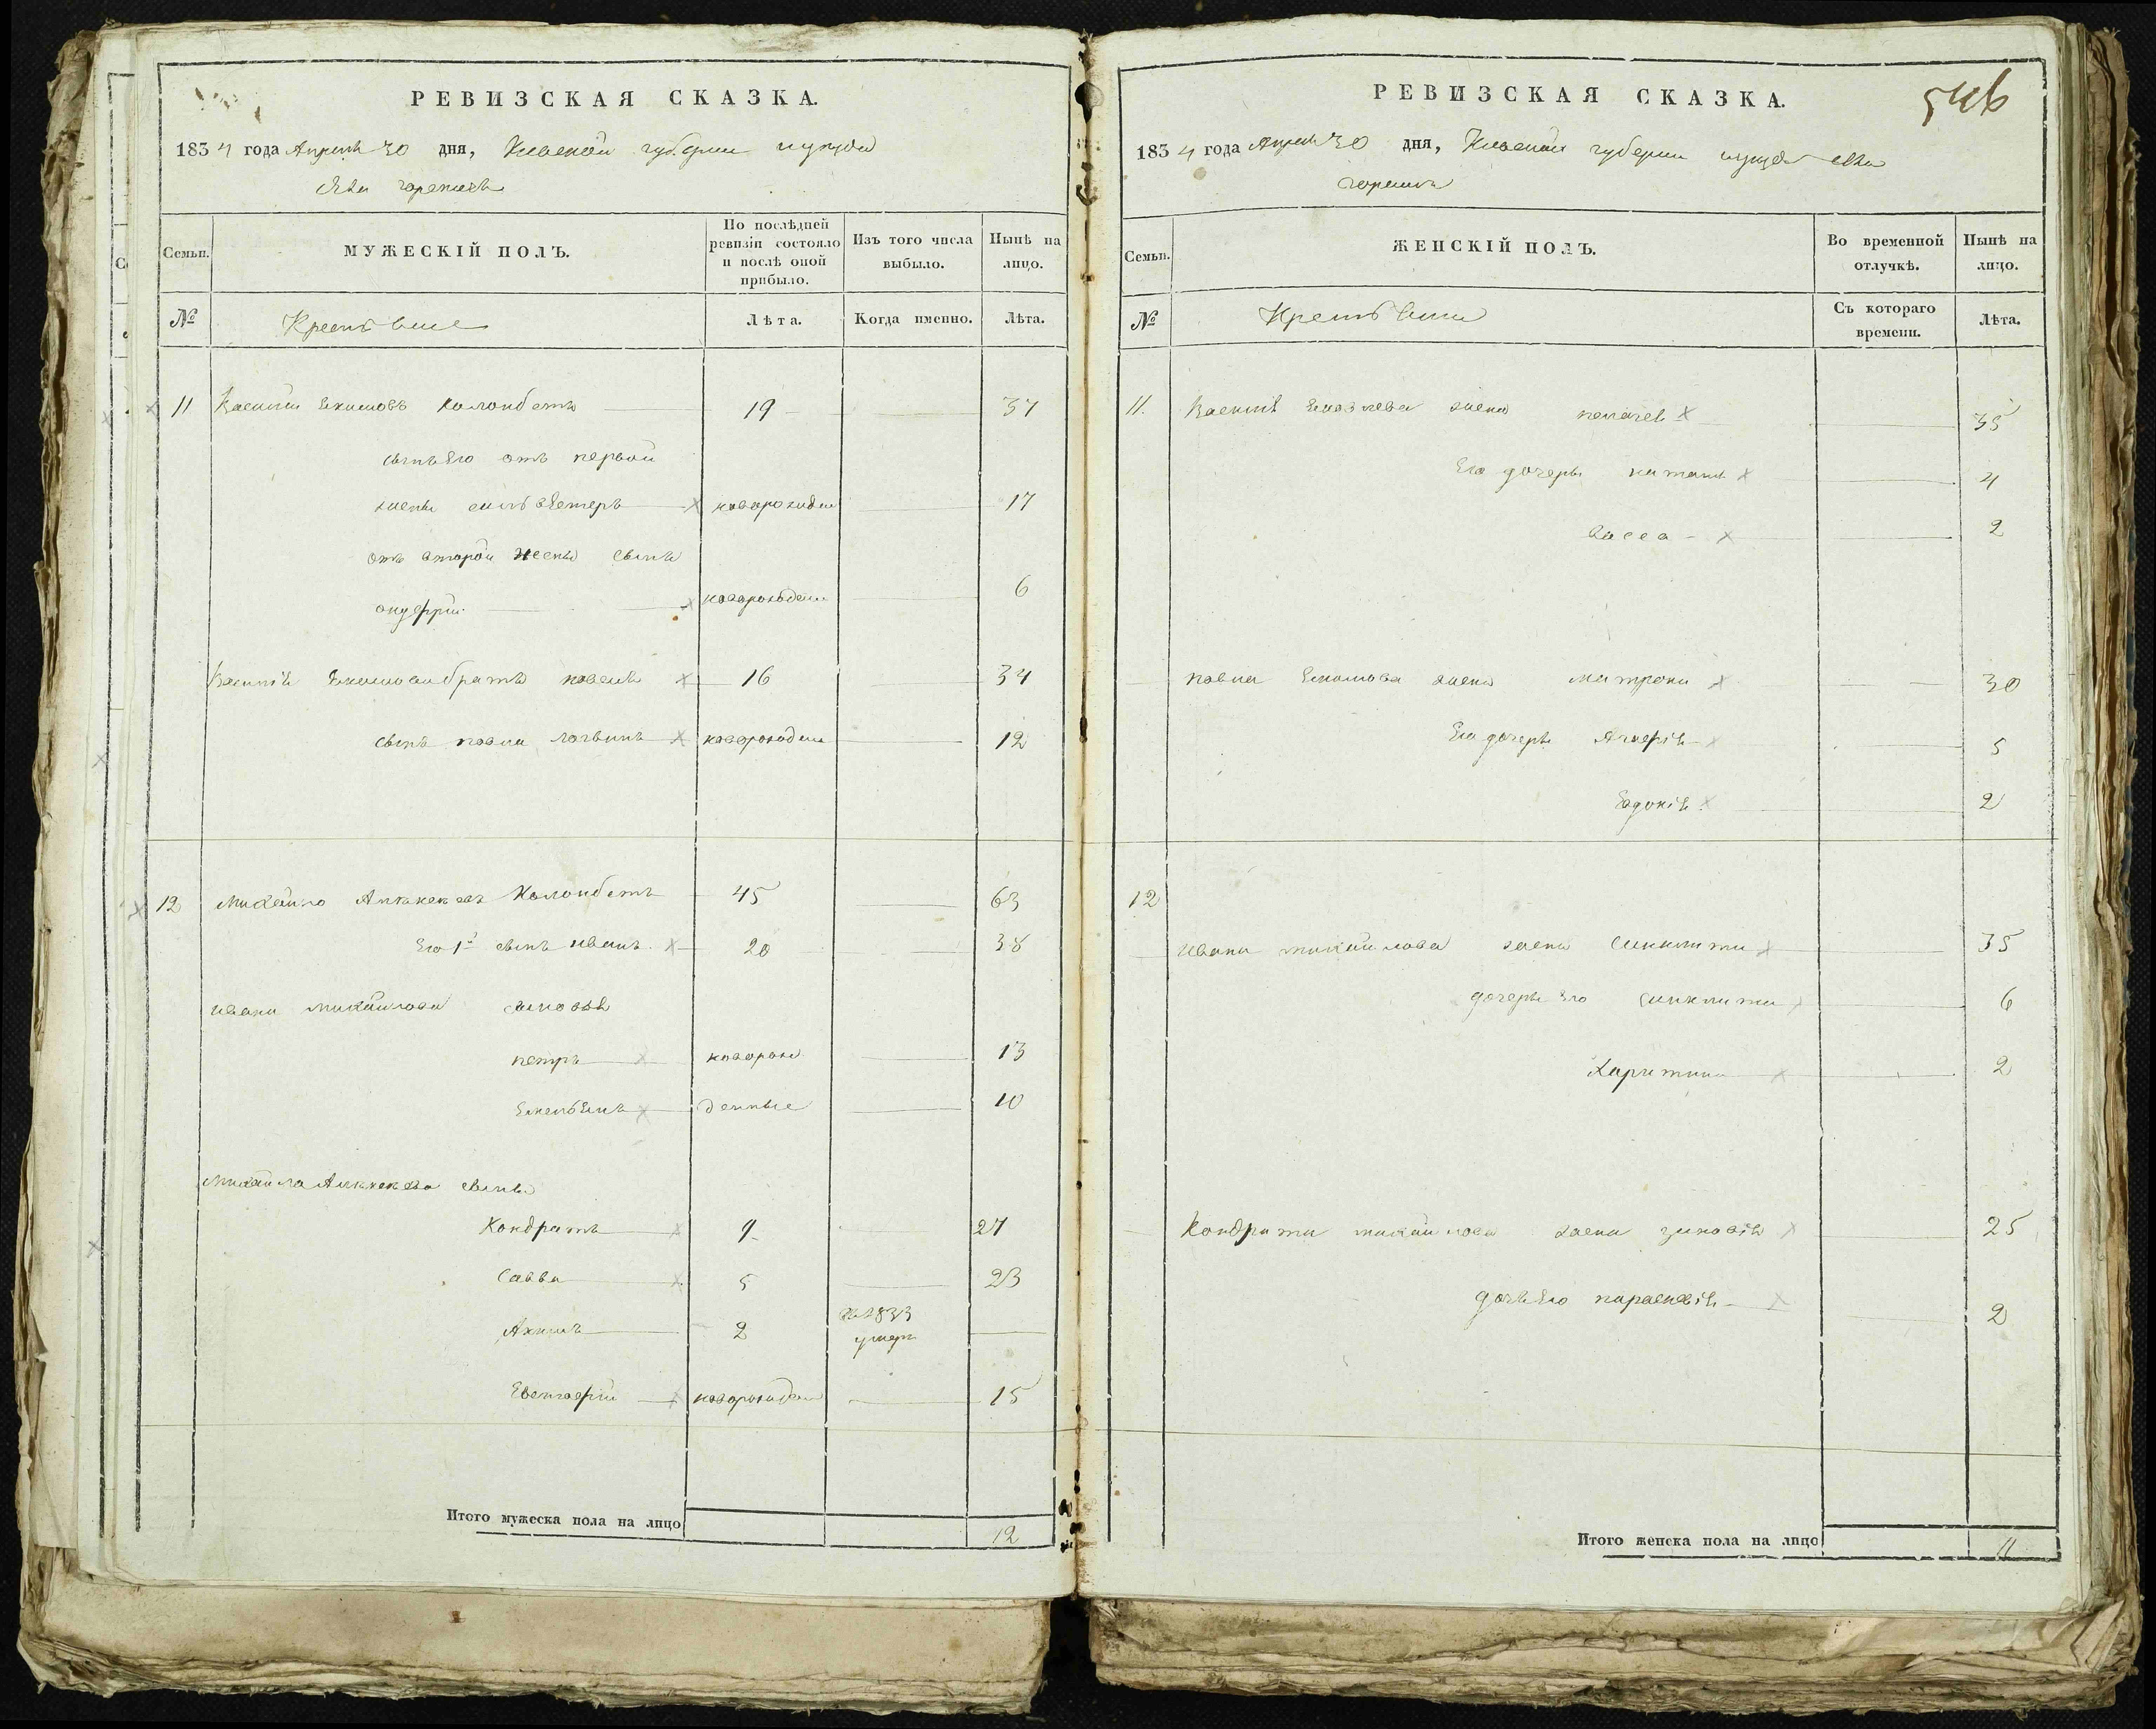 РЕВИЗСКАЯ СКАЗКА.
1834 года Апреля 30 дня, Киевской губернии и уезда
Села
Семьи.
МУЖЕСКІЙ ПОЛЪ.
По послѣдней ревизіи состояло и послѣ оной прибыло.
Изъ того числа выбыло.
Нынѣ на лицо.
№
Лѣта.
Когда именно.
Лѣта.
11 Василий Екимовъ Коломбетъ 19 37
сынъ Его отъ первой
жены новорожден 17
отъ второй жены сынъ
онуфрий новорожден 6
Василія Екимова братъ павелъ 16 34
сынъ павла логвинъ новорожден 12
12 Михайло Коломбетъ 45 63
Его 1й сынъ иванъ 20 38
ивана михайлова сыновья
петръ новорож 13
Емельянъ денные 10
Михайла сыны
Кондратъ 9 27
Савва 5 23
Акимъ 2 1833 умеръ
новорожден 15
Итого мужеска пола на лицо 12
РЕВИЗСКАЯ СКАЗКА.
546
1834 года Апреля 30 дня, Киевской губернии и уезда села
Семьи.
ЖЕНСКІЙ ПОЛЪ.
Во временной отлучкѣ.
Нынѣ на лицо.
№
Съ котораго времени.
Лѣта.
11. Василія жена пелагея 35
Его дочеръ наталія 4
васса 2
павла Екимова жена матрона 30
Его дочеръ 5
Евдокія 2
12
ивана михайлова жена синклита 35
дочеръ Его синклита 6
Харитина 2
Кондрата михайлова жена зиновія 25
дочь Его парасковія 2
Итого женска пола на лицо 11